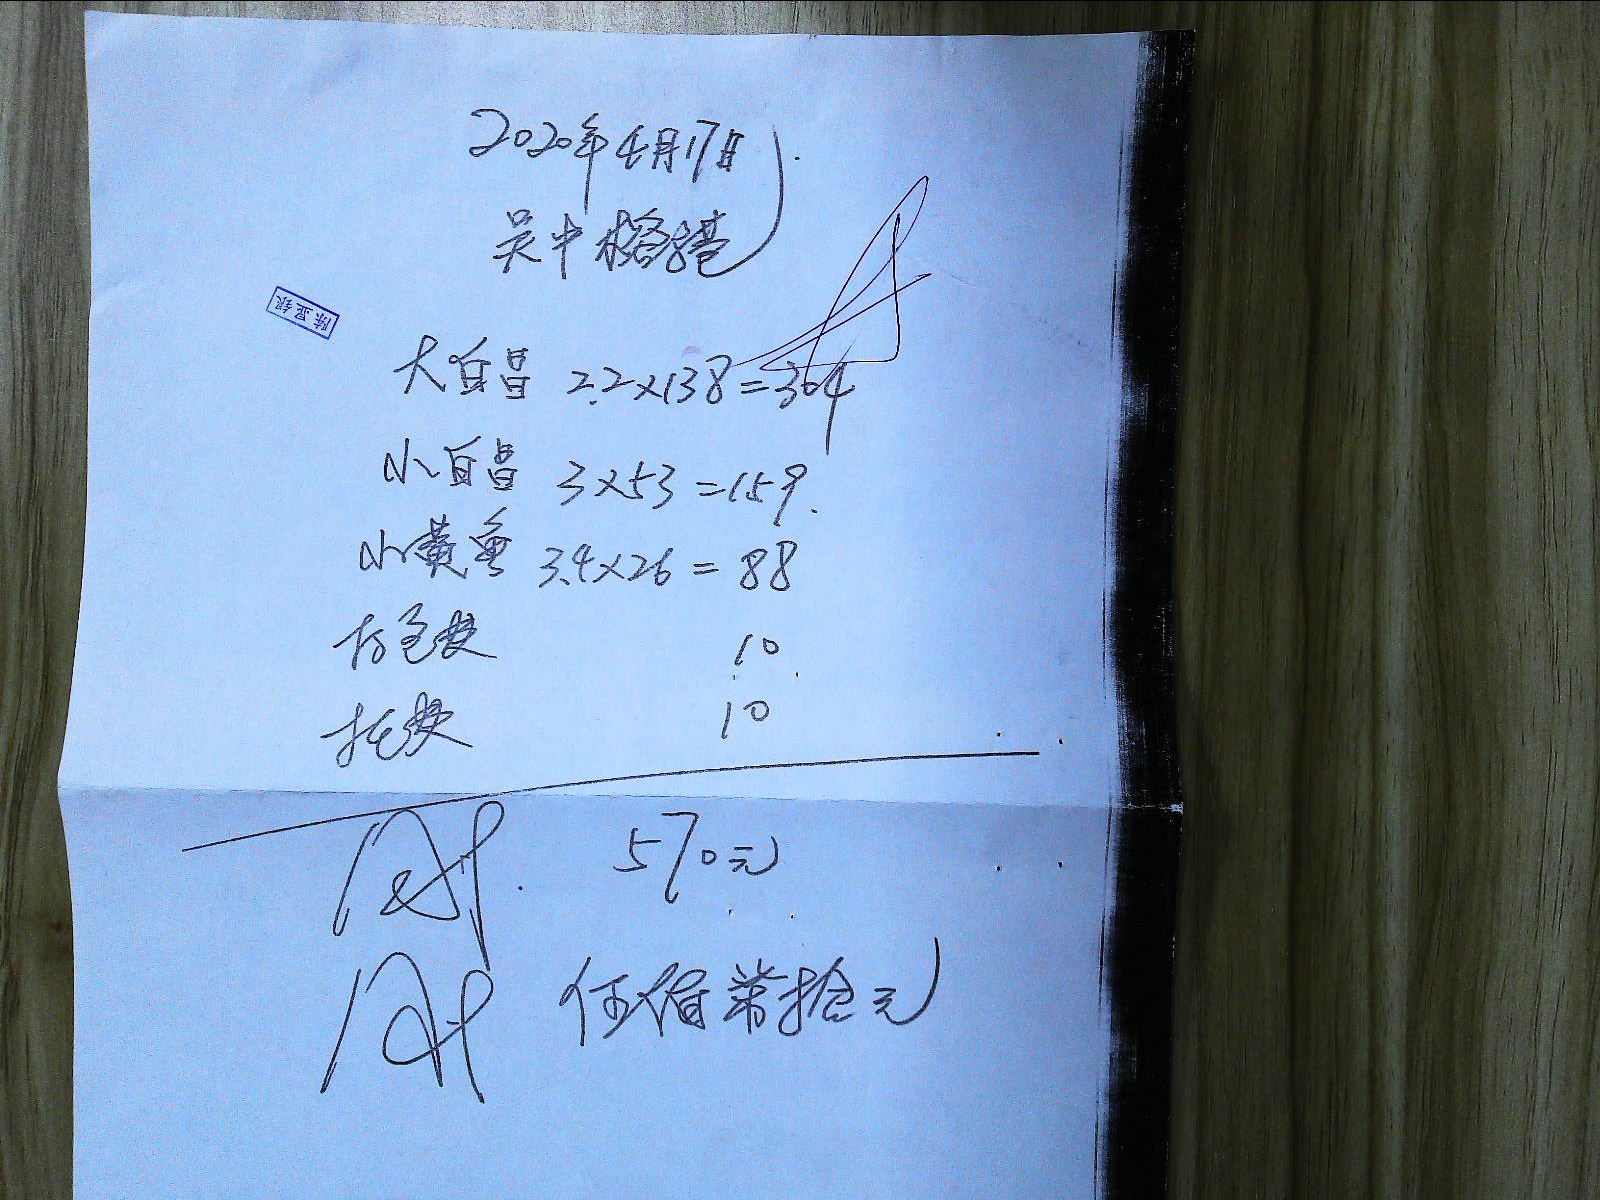 2020年4月17日
吴中
陈显银
大白昌 2.2×138=304
小白昌 3×53=159.
小黄鱼 3.4×26=88
打包费 10
托费 10
570元
伍佰柒拾元